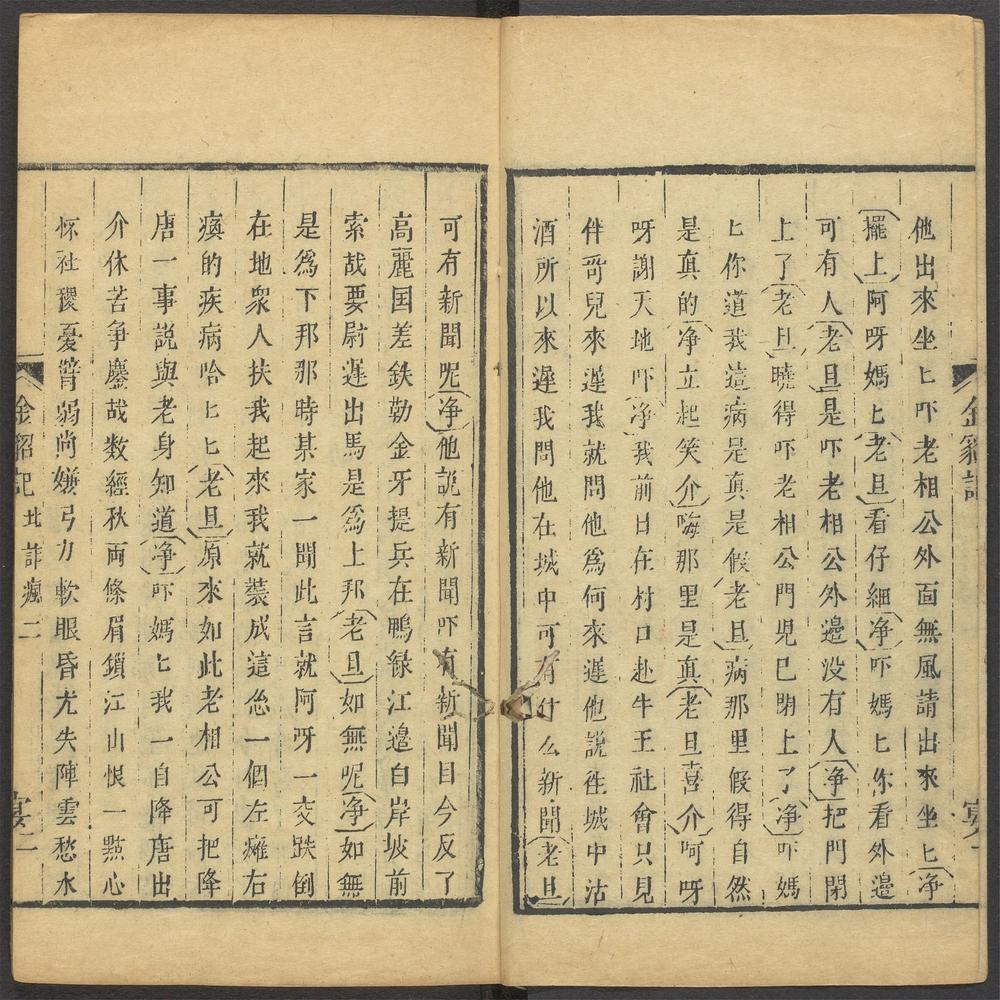 他出來坐匕吓老相公外面無風請出來坐匕淨
擺上阿呀媽匕老旦看仔細淨吓媽匕你看外邉
可有人老旦是吓老相公外邉没有人淨把門閉
上了老旦曉得吓老相公門児已閉上了淨吓媽
匕你道我這病是真是假老旦病那里假得自然
是真的淨立起笑介嗨那里是真老旦喜介呵呀
呀謝天地吓淨我前日在村口赴牛王社會只見
伴哥兒來遲我就問他爲何來遲他説徃城中沽
酒所以來遲我問他在城中可有什么新聞老旦
金貂記
宴一
可有新聞呢淨他説有新聞吓有新聞目今反了
高麗国差鉄勒金牙提兵在鴨緑江邉白岸坡前
索战要尉遲出馬是爲上邦老旦如無呢淨如無
是爲下邦那時某家一聞此言就阿呀一交跌倒
在地衆人扶我起來我就裝成這怹一個左癱右
瘓的疾病哈匕匕老旦原來如此老相公可把降
唐一事説與老身知道淨吓媽匕我一自降唐出
介休苦争鏖战数經秋両條眉鎖江山恨一㸃心
怀社稷憂膂弱尚嫌弓力軟眼昏尤失陣雲愁水
金貂記 北詐瘋二
宴二